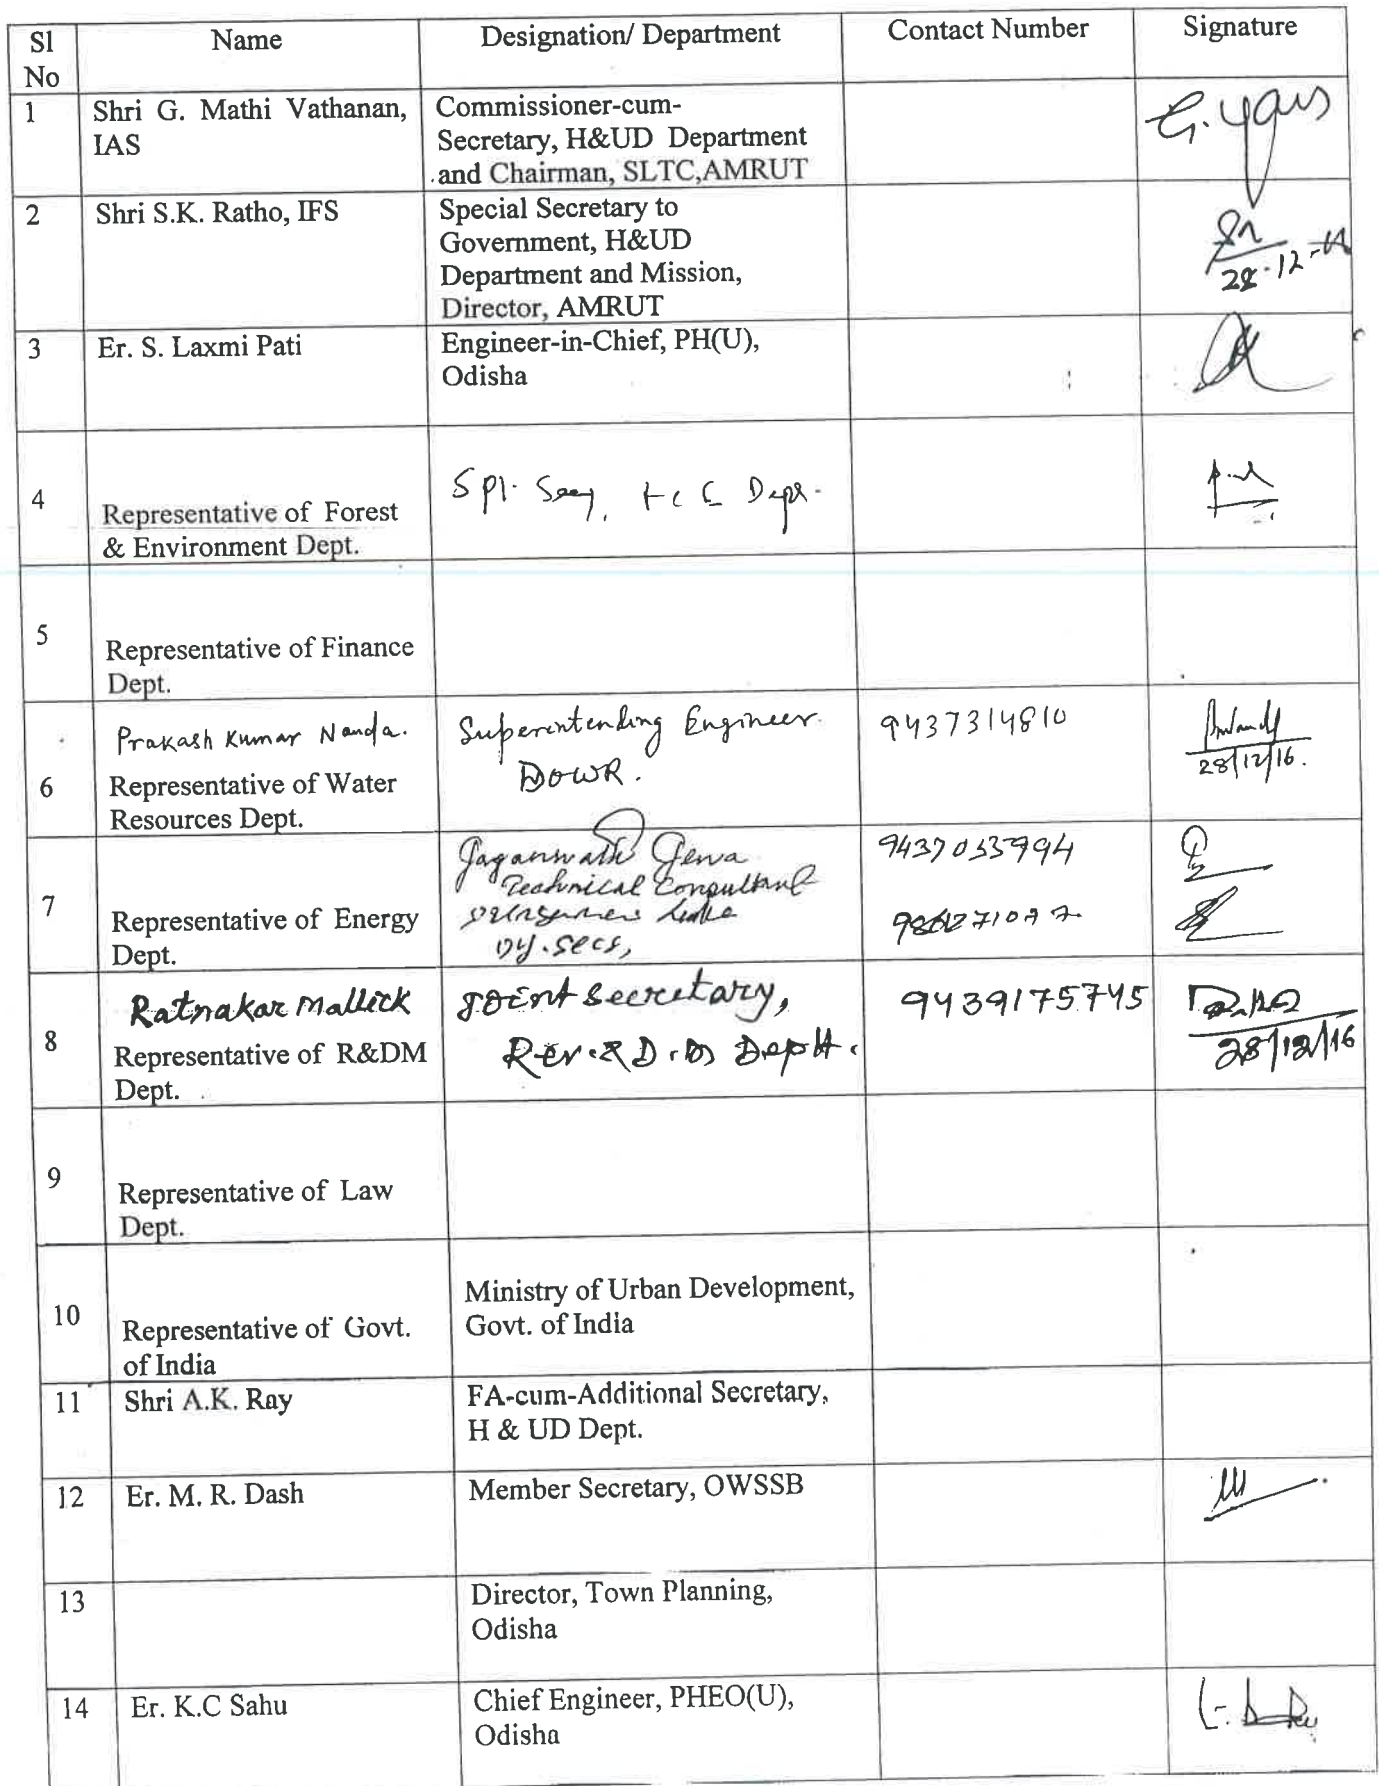 Sl No
Name
Designation/ Department
Contact Number
Signature
1
Shri G. Mathi Vathanan,
IAS
Commissioner-cum-
Secretary, H&UD Department
and Chairman, SLTC,AMRUT
2
Shri S.K. Ratho, IFS
Special Secretary to
Government, H&UD
Department and Mission,
Director, AMRUT
28-12-
3
Er. S. Laxmi Pati
Engineer-in-Chief, PH(U),
Odisha
4
Representative of Forest
& Environment Dept.
Spl. Secy,
5
Representative of Finance
Dept.
6
Prakash Kumar Nanda.
Representative of Water
Resources Dept.
Superintending Engineer.
DOWR.
9437314810
28/12/16.
7
Representative of Energy
Dept.
Jagannath Jena
Technical Consultant
Dy. Secy,
8
Ratnakar Mallick
Representative of R&DM
Dept.
Joint Secretary,
Rev. & D.M Deptt.
9439175745
28/12/16
9
Representative of Law
Dept.
10
Representative of Govt.
of India
Ministry of Urban Development,
Govt. of India
11
Shri A.K. Ray
FA-cum-Additional Secretary,
H & UD Dept.
12
Er. M. R. Dash
Member Secretary, OWSSB
13
Director, Town Planning,
Odisha
14
Er. K.C Sahu
Chief Engineer, PHEO(U),
Odisha